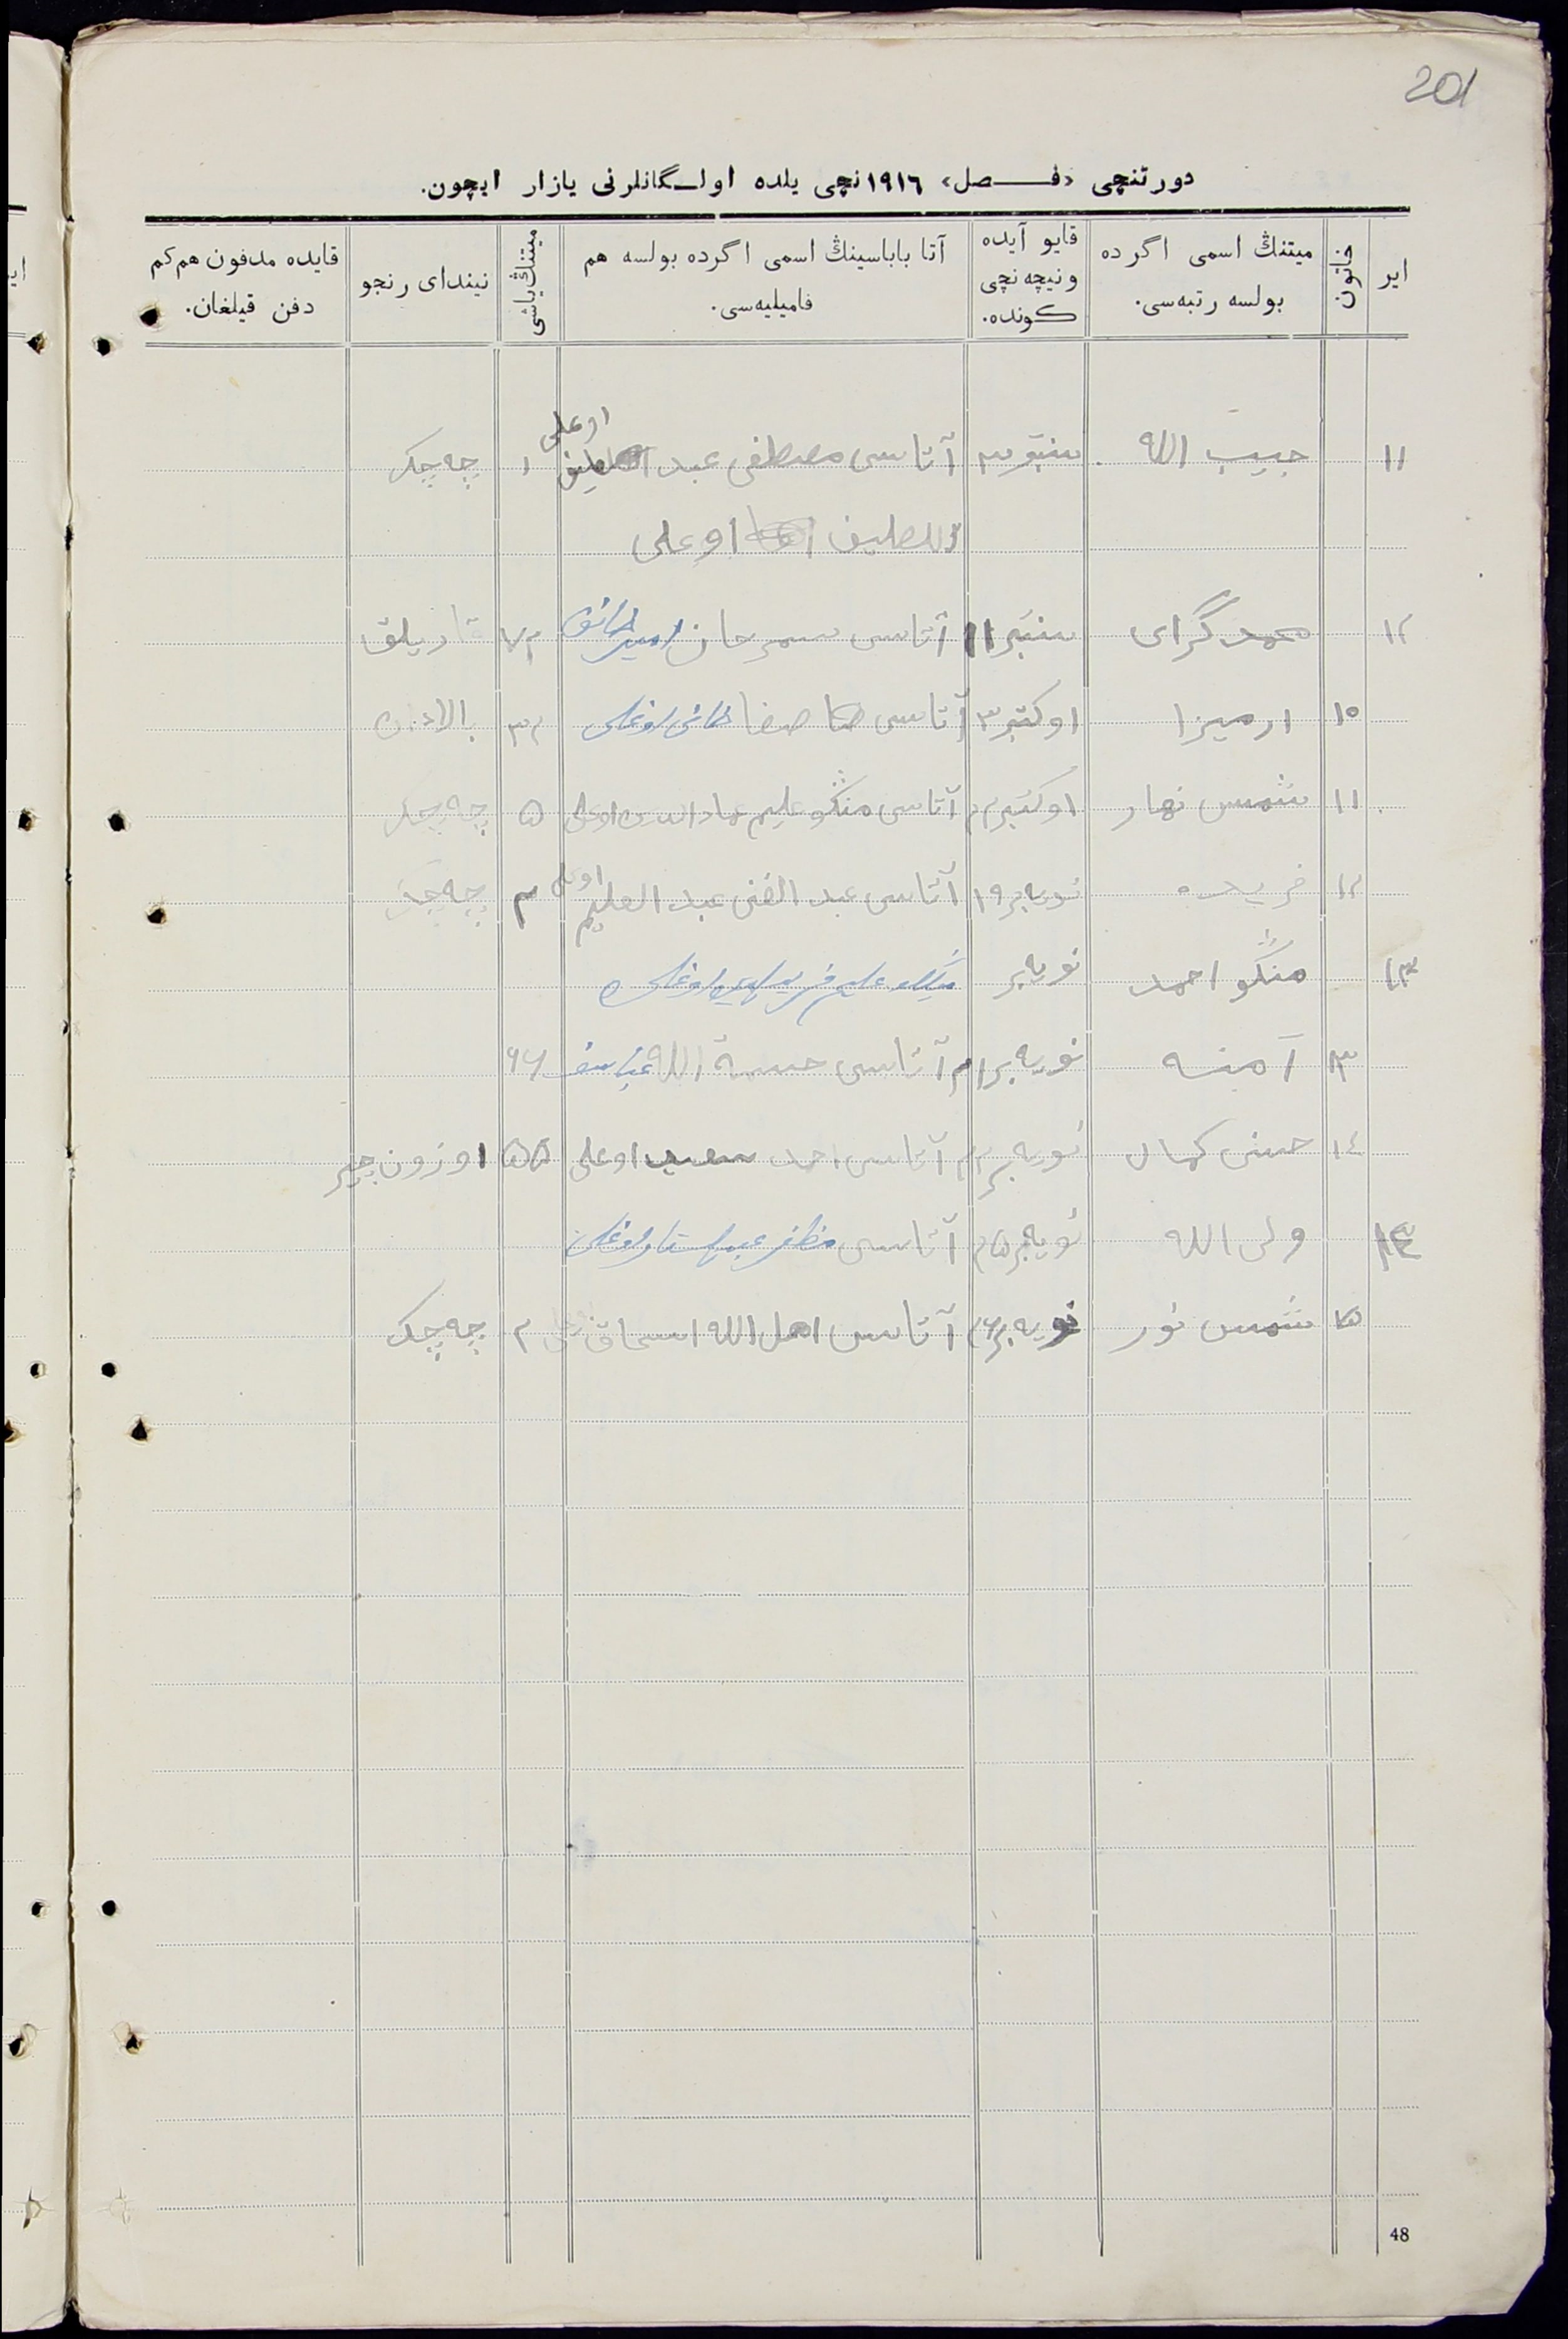 201
دورتنچی «فـــصل» ۱۹۱٦نچی یلده اولـگانلرنی یازار ایچون.
ایر | خاتون | میتنڭ اسمی اگرده بولسه رتبه‌سی. | قایو آیده ونیچه نچی کونده. | آتا باباسینڭ اسمی اگرده بولسه هم فامیلیه‌سی. | میتنڭ یاشی | نیندای رنجو | قایده مدفون هم کم دفن قیلغان.
اوغلی
۱۱ حبیب الله سنتبر ۳ آتاسی مصطفی عبد ۱ چه چک
اللطیف اوغلی
۱۲ محمد گرای سنتبر ۱۱ آتاسی سمرخان ۷۲ قارتلق
۱۰ ارمیزا اوکتبر ۳ آتاسی صفا اوغلی ۳۲
۱۱ شمس نهار اوکتبر آتاسی منگو علیم عماد الدین اوغلی ۵ چه چک
۱۲ فریده نویه بر ۱۹ آتاسی عبد الغنی عبد العلیم اوغلی ۳ چه چک
۱۳ منگو احمد نویه بر
۱۳ آمنه نویه بر آتاسی ۶۶
۱٤ حسن کمال نویه بر آتاسی احمد سعید اوغلی ۵۵ اوزون چیر
ولی الله نویه بر ۲۵ آتاسی مظفر عبد الستار اوغلی
۱۵ شمس نور نویه بر ۲۶ آتاسی اهل الله اسحاق اوغلی ۲ چه چک
48